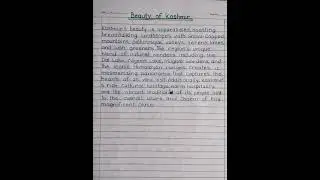 Beauty of Kashmir
Kashmir's beauty is unparalleled, boasting
breathtaking landscapes with snow-capped
mountains, picturesque valleys, serene lakes,
and lush greenery. The region's unique
blend of natural wonders, including the
Dal Lake, Nigeen Lake, Mughal Gardens, and
the iconic Himalayan ranges, creates a
mesmerizing panorama that captures the
hearts of all who visit. Additionally, Kashmir's
rich cultural heritage, warm hospitality,
and the vibrant traditions of its people add
to the overall charm and beauty of this
magnificent place.